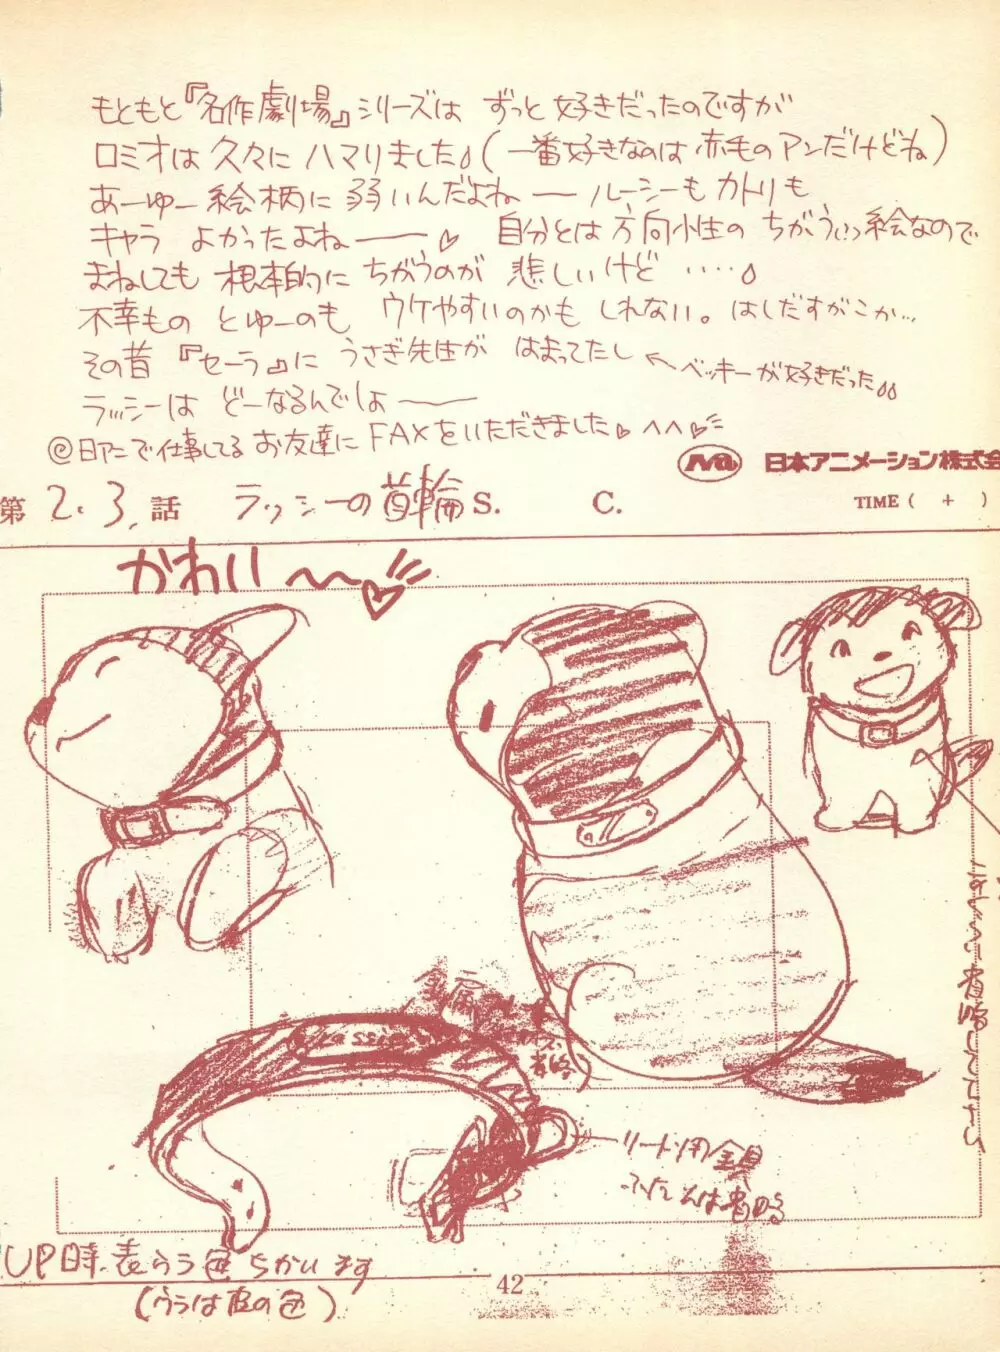 もともと『名作劇場』シリーズは ずっと 好きだったのですが
ロミオは 久々に ハマりました(一番好きなのは 赤毛の アンだけどね)
あーゆー 絵柄に 弱いんだよねー ルーシーも カトリも
キャラ よかったよねー♡ 自分とは 方向性の ちがうい 絵なので
まねしても 根本的に ちがうのが 悲しいけど ……
不幸もの とゆーのも ウケやすいのかも しれない。はしだすがこか…
その昔 『セーラ』に うさぎ先生が はまってたし ← ベッキーが好きだった
ラッシーは どーなるんでしょー
@日アニで仕事してる お友達に FAXをいただきました♡ ^^♡
日本アニメーション株式会
第 2.3. 話 ラッシーの首輪 S. C. TIME ( + )
かわい〜〜♡
金属
省略
省略して下さい
リード用金具
ふだんは省略
UP時、表 うら 色 ちがい ます
(ウラは皮の色)
42